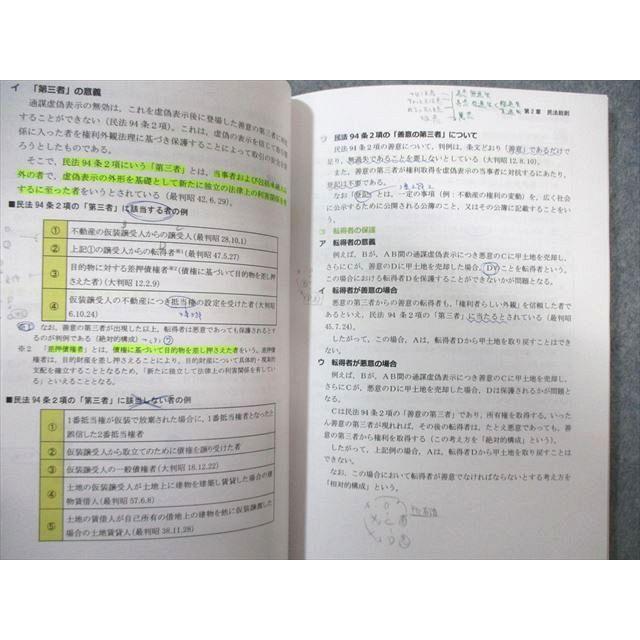 イ 「第三者」の意義
通謀虚偽表示の無効は，これを虚偽表示後に登場した善意の第三者に対抗
することができない（民法94条2項）。これは，虚偽の表示を信じて取引関
係に入った者を権利外観法理に基づき保護することによって取引の安全を図
ろうとしたものである。
そこで，民法94条2項にいう「第三者」とは，当事者および包括承継人以
外の者で，虚偽表示の外形を基礎として新たに独立の法律上の利害関係を有
するに至った者をいうとされている（最判昭42.6.29）。
■民法94条2項の「第三者」に該当する者の例
① 不動産の仮装譲受人からの譲受人（最判昭28.10.1）
② 上記①の譲受人からの転得者※1（最判昭47.5.27）
③ 目的物に対する差押債権者※2（債権に基づいて目的物を差し押
さえた者）（大判昭12.2.9）
④ 仮装譲受人の不動産につき抵当権の設定を受けた者（大判昭
6.10.24）
※1 なお，善意の第三者が出現した以上，転得者は悪意であっても保護されるとす
るのが判例である（絶対的構成）
※2 「差押債権者」とは，債権に基づいて目的物を差し押さえた者をいう。差押債
権者は，目的財産を差し押さえることにより，目的財産について具体的・現実的
支配を確立することとなるため，「新たに独立して法律上の利害関係を有してい
る」といえることとなる。
■民法94条2項の「第三者」に該当しない者の例
① 1番抵当権が仮装で放棄された場合に，1番抵当権者となったと
誤信した2番抵当権者
② 仮装譲受人から取立てのために債権を譲り受けた者
③ 仮装譲受人の一般債権者（大判昭18.12.22）
④ 土地の仮装譲受人が土地上に建物を建築し賃貸した場合の建
物賃借人（最判昭57.6.8）
⑤ 土地の賃借人が自己所有の借地上の建物を他に仮装譲渡した
場合の土地賃貸人（最判昭38.11.28）
第2章 民法総則
ウ 民法94条2項の「善意の第三者」について
民法94条2項の善意について，判例は，条文どおり「善意」であるだけで
足り，無過失であることを要しないとしている（大判昭12.8.10）。
また，善意の第三者が権利取得を虚偽表示の当事者に対抗するにあたり，
登記は不要である。
なお「登記」とは，一定の事項（例：不動産の権利の変動）を，広く社会
に公示するために公開される公簿のこと，又はその公簿に記載することをい
う。
③ 転得者の保護
ア 転得者の意義
例えば，Bが，AB間の通謀虚偽表示につき善意のCに甲土地を売却し，
さらにCが，善意のDに甲土地を売却した場合，Dのことを転得者という。
この場合における転得者Dを保護することができないかが問題となる。
イ 転得者が善意の場合
悪意の第三者からの善意の転得者も，「権利者らしい外観」を信頼した者で
あるといえ，民法94条2項の「第三者」に当たるとされている（最判昭
45.7.24）。
したがって，この場合，Aは，転得者Dから甲土地を取り戻すことはでき
ない。
ウ 転得者が悪意の場合
例えば，Bが，AB間の通謀虚偽表示につき善意のCに甲土地を売却し，
さらにCが，悪意のDに甲土地を売却した場合，Dは保護されるかが問題
となる。
Cは民法94条2項の「善意の第三者」であり，所有権を取得する。いった
ん善意の第三者が現れれば，その後の転得者は，たとえ悪意であっても，善
意の第三者から権利を取得する（この考え方を「絶対的構成」という）。
したがって，上記例の場合，Aは，転得者Dから甲土地を取り戻すことは
できない。
なお，この場合において転得者が善意でなければならないとする考え方を
「相対的構成」という。